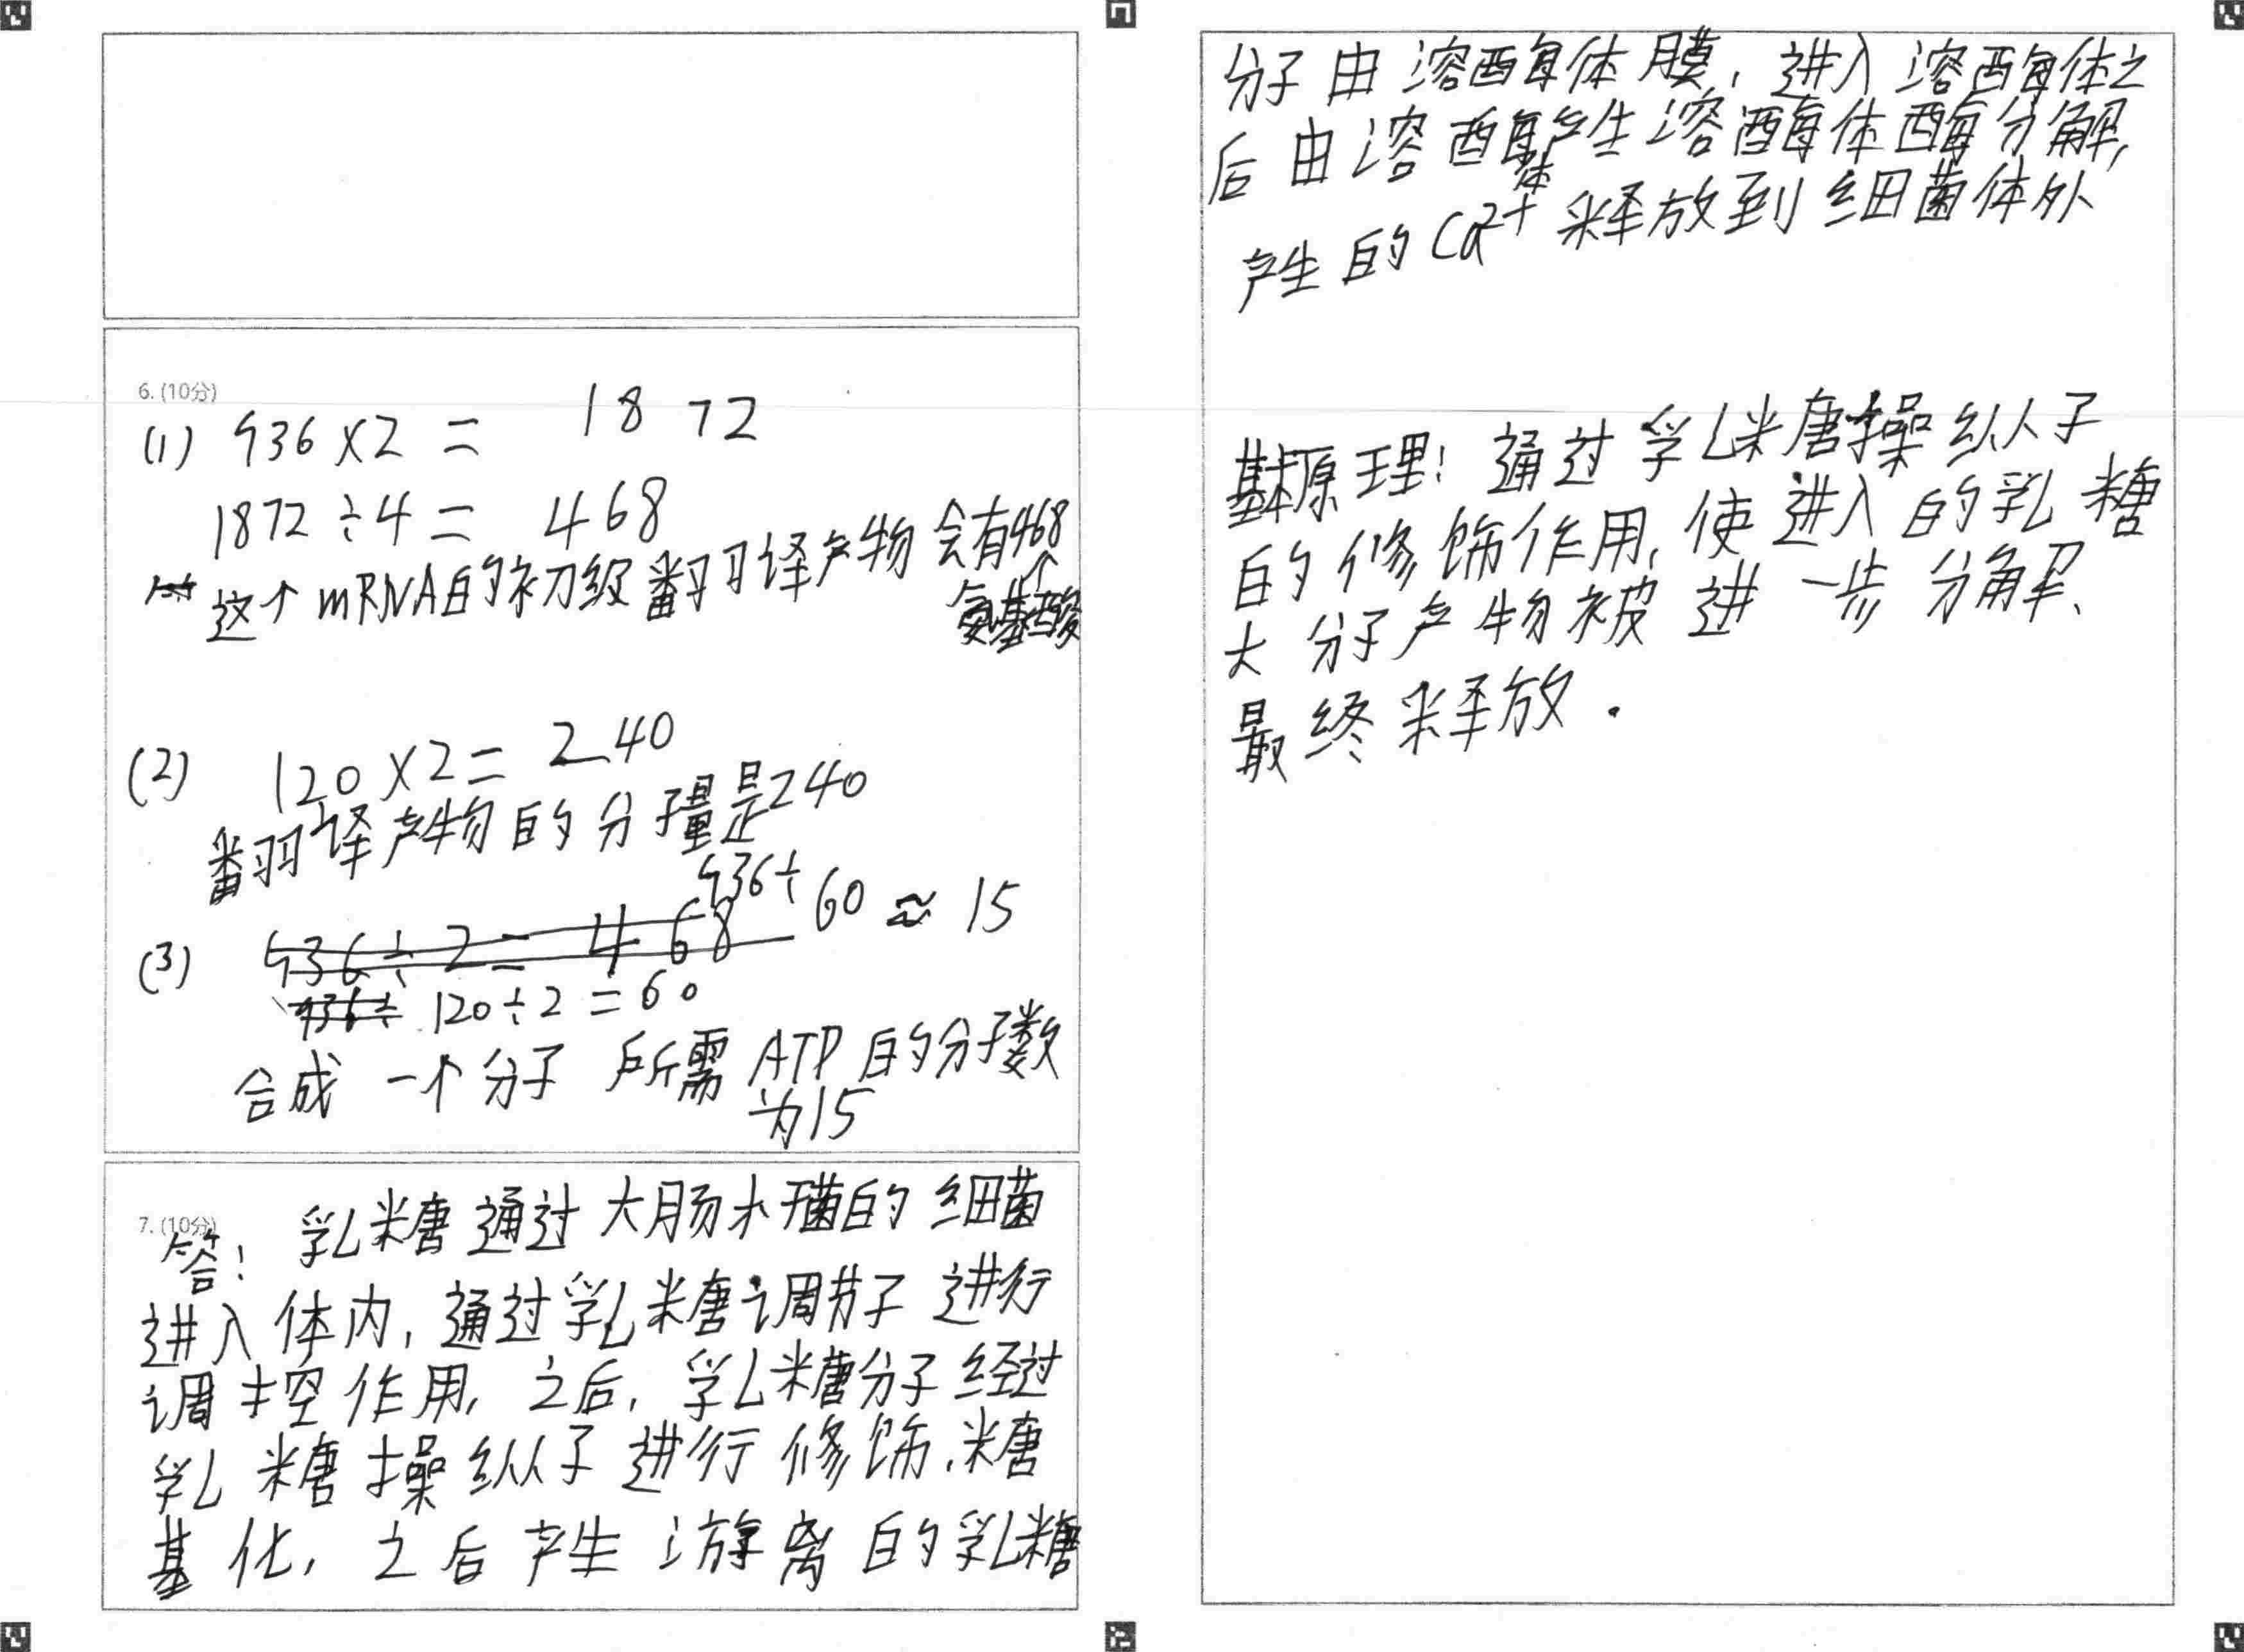 6. (10分)
(1) 936×2 = 1872
1872÷4 = 468
这个mRNA的初级翻译产物会有468个
氨基酸
(2) 120×2 = 240
翻译产物的分子量是240
936÷60≈15
(3) 936÷2=468
936÷ 120÷2=60
合成一个分子所需ATP的分子数
为15
7. (10分)
答: 乳糖通过大肠杆菌的细菌
进入体内, 通过乳糖调节子进行
调控作用, 之后, 乳糖分子经过
乳糖操纵子进行修饰、糖
基化, 之后产生游离的乳糖
分子由溶酶体膜, 进入溶酶体之
后由溶酶体产生溶酶体酶分解,
产生的Ca²⁺释放到细菌体外
基本原理: 通过乳糖操纵子
的修饰作用, 使进入的乳糖
大分子产物被进一步分解、
最终释放.